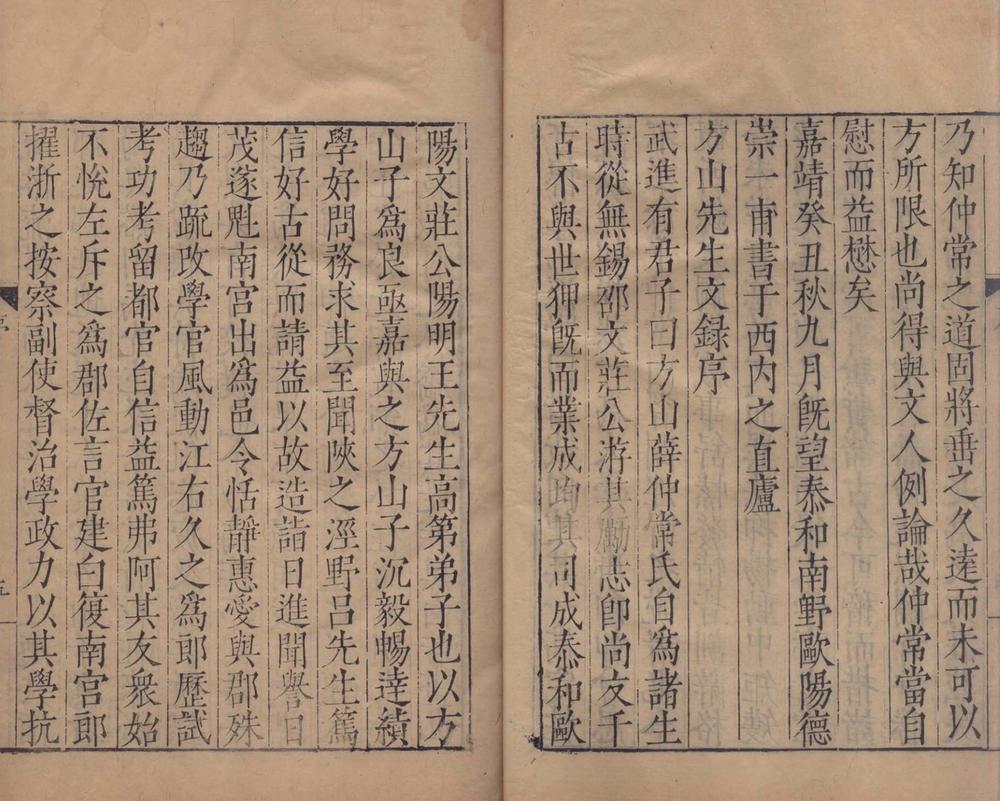 乃知仲常之道固將垂之久遠而未可以
方所限也尚得與文人例論哉仲常當自
慰而益懋矣
嘉靖癸丑秋九月旣望泰和南野歐陽德
崇一甫書于西内之直廬
方山先生文録序
武進有君子曰方山薛仲常氏自爲諸生
時從無錫邵文莊公游其勵志卽尚友千
古不與世狎旣而業成均其司成泰和歐
陽文莊公陽明王先生高第弟子也以方
山子爲良亟嘉與之方山子沉毅暢達績
學好問務求其至聞陜之涇野吕先生篤
信好古從而請益以故造詣日進聞譽日
茂遂魁南宫出爲邑令恬靜惠愛與郡殊
趨乃疏改學官風動江右久之爲郎歷試
考功考留都官自信益篤弗阿其友衆始
不悅左斥之爲郡佐言官建白復南宫郎
擢浙之按察副使督治學政力以其學抗
序
五